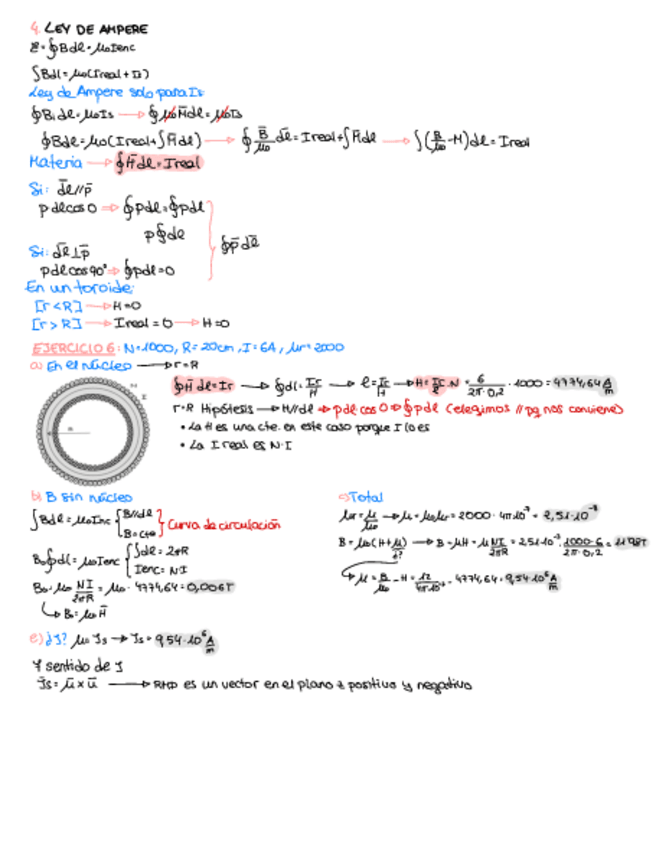 4. LEY DE AMPERE
ε = ∮Bdl = μ₀Ienc
∫Bdl = μ₀(Ireal + Is)
Ley de Ampere solo para Is:
∮Bidl = μ₀Is → ∮μ₀M̄dl = μ₀Is
∮Bdl = μ₀(Ireal+∫M̄dl) → ∮B̄/μ₀ dl = Ireal+∫M̄dl → ∫(B/μ₀ - M)dl = Ireal
Materia → ∮H̄dl = Ireal
Si: d̄l//p̄
pdlcos0 → ∮pdl = ∮pdl
p∮dl
∮p̄d̄l
Si: d̄l⊥p̄
pdlcos90° → ∮pdl = 0
En un toroide:
[r<R] → H=0
[r>R] → Ireal = 0 → H=0
EJERCICIO 6: N=1000, R=20cm, I=6A, μr=2000
a) En el núcleo → r=R
∮H̄dl = Ir → ∮dl = Ir/H → l = Ir/H → H = Ir/l · N = 6/2π·0,2 · 1000 = 4774,64 A/m
r=R Hipótesis → H//dl → pdlcos0 → ∮pdl (elegimos // pq nos conviene)
• La H es una cte. en este caso porque I lo es
• La I real es N·I
N
I
R
b) B sin núcleo
∫Bdl = μ₀Ienc { B//dl B=cte } Curva de circulación
B₀∮dl = μ₀Ienc { ∫dl = 2πR Ienc = N·I
B₀ = μ₀ NI/2πR = μ₀ · 4774,64 = 0,006T
↳ B₀ = μ₀H̄
c) Total
μr = μ/μ₀ → μ = μ₀μr = 2000 · 4π10⁻⁷ = 2,51·10⁻³
B = μ₀(H+M) → B = μH = μ NI/2πR = 2,51·10⁻³ · 1000·6/2π·0,2 = 11'98T
¿?
↳ M = B/μ₀ - H = 12/4π10⁻⁷ - 4774,64 = 9,54·10⁶ A/m
e) ¿J? μ₀ Js → Js = 9,54·10⁶ A/m
Y sentido de J
J̄s = μ̄ × ū → RMD es un vector en el plano z positivo y negativo